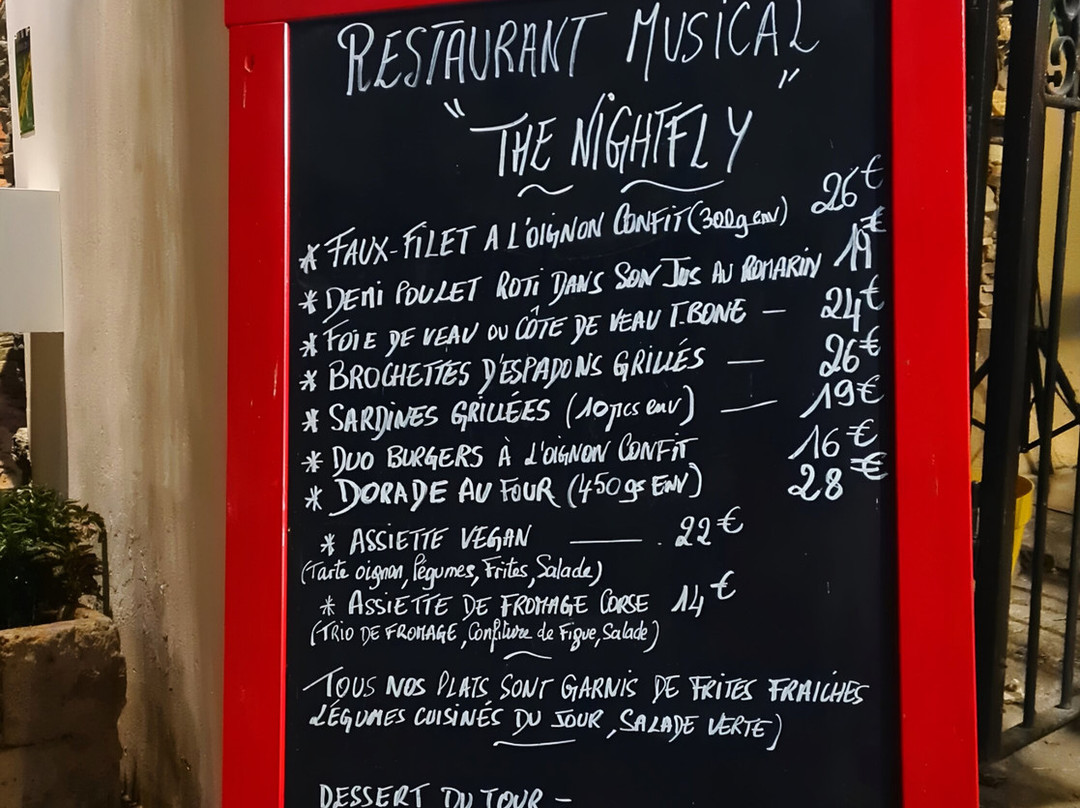 RESTAURANT MUSICAL
"THE NIGHTFLY"
* FAUX-FILET A L'OIGNON CONFIT (300g env) 26€
* DEMI POULET ROTI DANS SON JUS AU ROMARIN 19€
* FOIE DE VEAU OU CÔTE DE VEAU T.BONE — 24€
* BROCHETTES D'ESPADONS GRILLÉS — 26€
* SARDINES GRILLÉES (10 pcs env) — 19€
* DUO BURGERS À L'OIGNON CONFIT 16€
* DORADE AU FOUR (450gs ENV) 28€
* ASSIETTE VEGAN — . 22€
(Tarte oignon, Légumes, Frites, Salade)
* ASSIETTE DE FROMAGE CORSE 14€
(TRIO DE FROMAGE, Confiture de Figue, Salade)
TOUS NOS PLATS SONT GARNIS DE FRITES FRAICHES
LÉGUMES CUISINÉS DU JOUR, SALADE VERTE)
DESSERT DU JOUR –